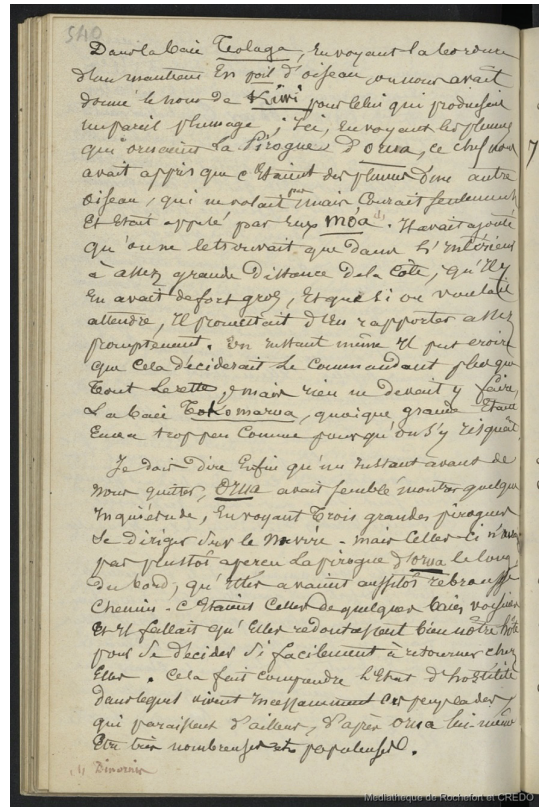 540
Dans la baie Tolaga, en voyant la bordure
d'un manteau en poil d'oiseau, on nous avait
donné le nom de Kiwi pour celui qui produisait
un pareil plumage ; ici, en voyant les plumes
qui ornaient la Pirogue d'orua, ce chef nous
avait appris que c'étaient des plumes d'un autre
oiseau, qui ne volait pas mais courait seulement
et était appelé par eux móa (1). Il avait ajouté
qu'on ne le trouvait que dans l'intérieur
à assez grande distance de la Côte, qu'il y
en avait de fort gros, et que si on voulait
attendre, il promettait d'en rapporter assez
promptement. Un instant même il put croire
que cela déciderait le commandant plus que
tout le reste, mais rien ne devait y faire,
La baie Tokomarua, quoique grande étant
encore trop peu connue pour qu'on s'y risquât.
Je dois dire enfin qu'un instant avant de
nous quitter, orua avait semblé montrer quelque
inquiétude, en voyant trois grandes pirogues
se diriger sur le navire - mais celles-ci n'
pas plustôt aperçu la pirogue d'orua le long
du bord, qu'elles avaient aussitôt rebroussé
chemin. C'étaient celles de quelques baies voisines
et il fallait qu'elles redoutassent bien notre hôte
pour se décider si facilement à retourner chez
elles. Cela fait comprendre l'état d'hostilité
dans lequel vivent incessamment ces peuplades
qui paraissent d'ailleurs, d'après orua lui-même
être très nombreuses et populeuses.
(1) Dinornis
Médiathèque de Rochefort et CREDO